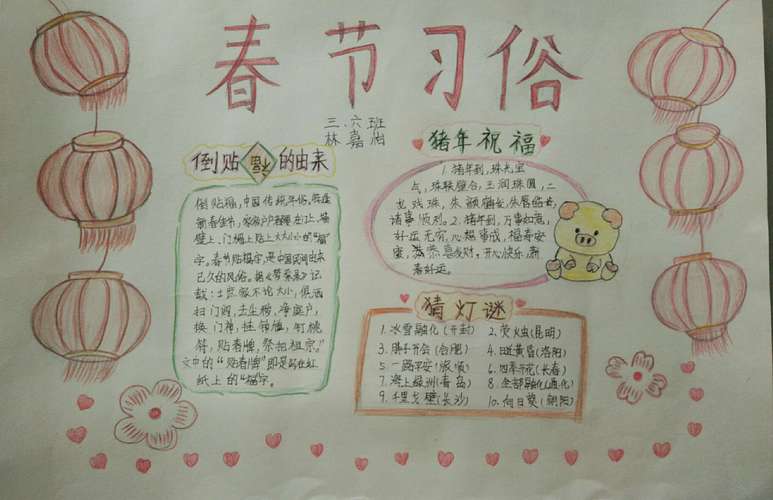 春节习俗
三.六班
林嘉
倒贴福的由来
倒贴福,中国传统年俗,每逢
新春佳节,家家户户都要在门上、墙
壁上、门楣上贴上大大小小的“福”
字。春节贴福字,是中国民间由来
已久的风俗。据《梦粱录》记
载:士庶家不论大小,俱洒
扫门闾,去尘秽,净庭户,
换门神,挂钟馗,钉桃
符,贴春牌,祭祀祖宗。”
文中的“贴春牌”即是写在红
纸上的“福”字。
猪年祝福
1.猪年到,珠光宝
气,珠联璧合,玉润珠圆,二
龙戏珠,朱颜
诸事顺利。2.猪年到,万事如意,
好运无穷,心想事成,福寿安
恭喜发财,开心快乐,新
春好运。
猜灯谜
1.冰雪融化(开封)
2.荧火虫(昆明)
3.胜利会(合肥)
4.日近黄昏(洛阳)
5.一路平安(旅顺)
6.四季开花(长春)
7.海上绿洲(青岛)
8.全部融化(通化)
9.千里戈壁(长沙)
10.向日葵(朝阳)